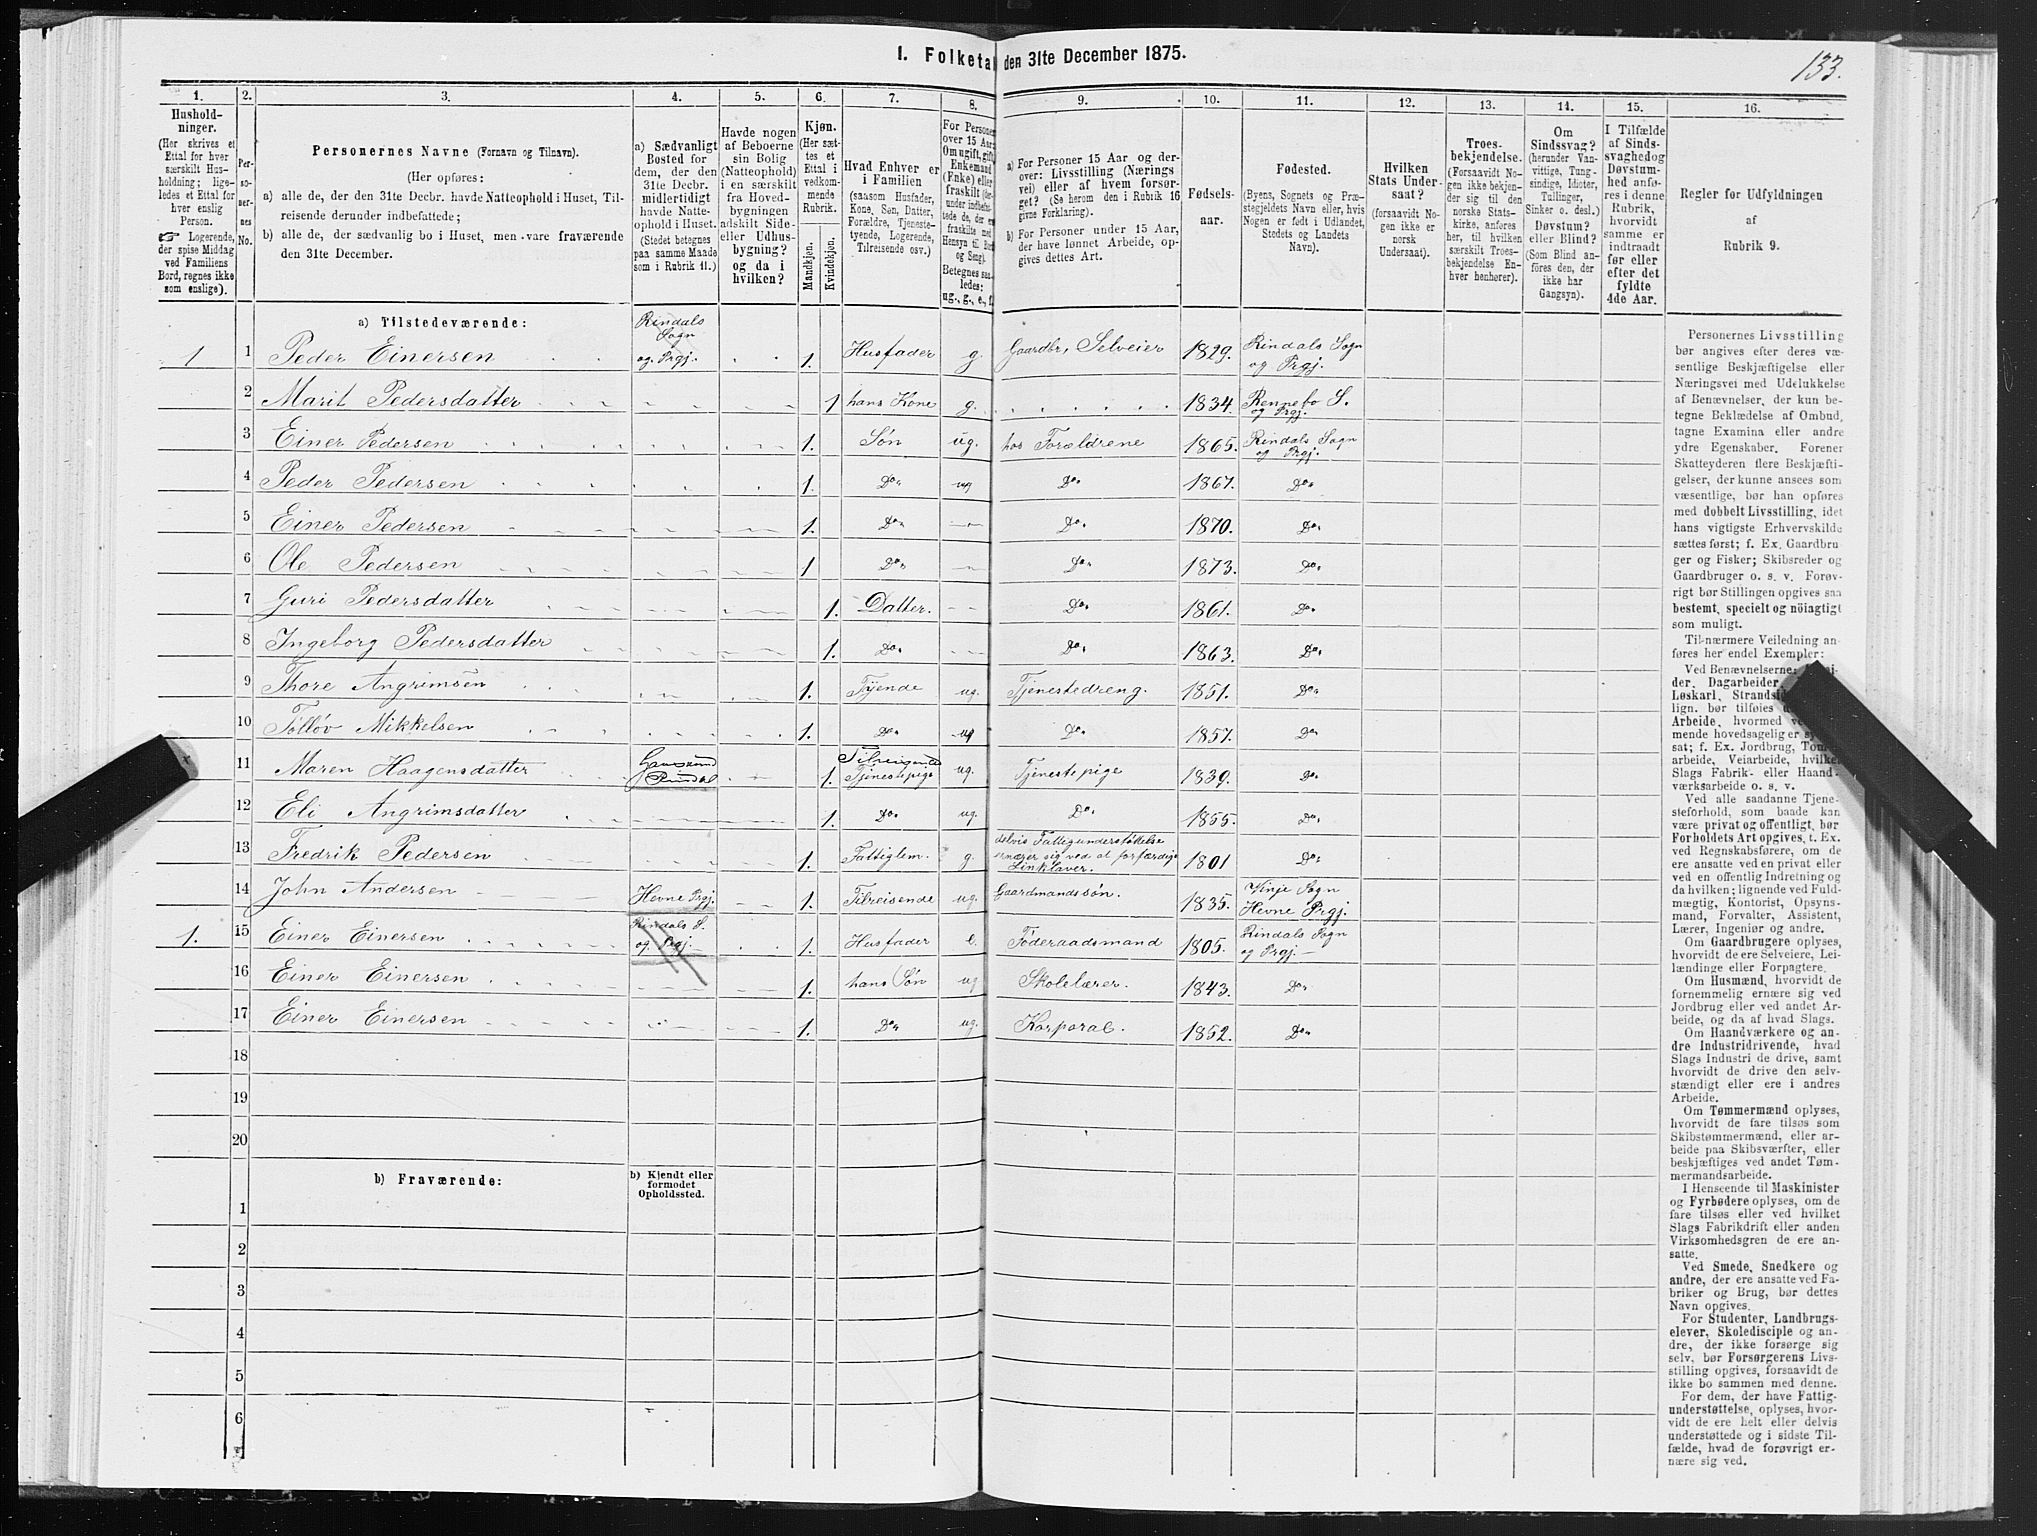 I. Folketal den 31te December 1875.
133.
1. 2. 3. 4. 5. 6. 7. 8. 9. 10. 11. 12. 13. 14. 15. 16.
Hushold-
ninger.
(Her skrives et
Ettal for hver
særskilt Hus-
holdning; lige-
ledes et Ettal for
hver enslig
Person.
☞ Logerende,
der spise Middag
ved Familiens
Bord, regnes ikke
som enslige).
Per-
so-
ner-
nes
No.
Personernes Navne (Fornavn og Tilnavn).
(Her opføres:
a) alle de, der den 31te Decbr. havde Natteophold i Huset, Til-
reisende derunder indbefattede;
b) alle de, der sædvanlig bo i Huset, men vare fraværende
den 31te December.
a) Sædvanligt
Bosted for
dem, der den
31te Decbr.
midlertidigt
havde Natte-
ophold i Huset.
(Stedet betegnes
paa samme Maade
som i Rubrik 11.)
Havde nogen
af Beboerne
sin Bolig
(Natteophold)
i en særskilt
fra Hoved-
bygningen
adskilt Side-
eller Udhus-
bygning?
og da i
hvilken?
Kjøn.
(Her sæt-
tes et
Ettal i
vedkom-
mende
Rubrik.
Mandkjøn.
Kvindekjøn.
Hvad Enhver er
i Familien
(saasom Husfader,
Kone, Søn, Datter,
Forældre, Tjeneste-
tyende, Logerende,
Tilreisende osv.)
For Personer
over 15 Aar:
Om ugift, gift,
Enkemand
(Enke) eller
fraskilt
Betegnes saa-
ledes:
ug., g., e., f.
a) For Personer 15 Aar og der-
over: Livsstilling (Nærings
vei) eller af hvem forsør-
get? (Se herom den i Rubrik 16
givne Forklaring).
b) For Personer under 15 Aar,
der have lønnet Arbeide, op-
gives dettes Art.
Fødsels-
aar.
Fødested.
(Byens, Sognets og Præ-
stegjeldets Navn eller, hvis
Nogen er født i Udlandet,
Stedets og Landets
Navn).
Hvilken
Stats Under-
saat?
(forsaavidt No-
gen ikke er
norsk
Undersaat).
Troes-
bekjendelse.
(Forsaavidt No-
gen ikke bekjen-
der sig til den
norske Stats-
kirke, anføres
her, til hvilken
særskilt Troes-
bekjendelse En-
hver henhører).
Om
Sindssvag?
(herunder Van-
vittige, Tung-
sindige, Idioter,
Tullinger,
Sinker o. desl.)
Døvstum?
eller Blind?
(Som Blind an-
føres den, der
ikke har
Gangsyn).
I Tilfælde
af Sinds-
svaghed og
Døvstum-
hed anfø-
res i denne
Rubrik,
hvorvidt
samme er
indtraadt
før eller
efter det
fyldte
4de Aar.
Regler for Udfyldningen
af
Rubrik 9.
a) Tilstedeværende:
Rindals
Sogn
1 1 Peder Einersen og Prgj. 1. Husfader g. Gaardbr, Selveier 1829. Rindals Sogn
og Prgj.
2 Marit Pedersdatter 1 hans Kone g. 1834. Rennebo S.
og Prgj.
3 Einer Pedersen 1. Søn ug. hos Forældrene 1865. Rindals Sogn
og Prgj.
4 Peder Pedersen 1. Do. ug Do. 1867. Do.
5 Einer Pedersen 1. Do. Do. 1870. Do.
6 Ole Pedersen 1 Do. Do. 1873. Do.
7 Guri Pedersdatter 1. Datter. Do. 1861. Do.
8 Ingeborg Pedersdatter 1. Do. Do. 1863. Do.
9 Thore Angrimsen 1. Tyende ug. Tjenestedreng. 1851. Do.
10 Tølløv Mikkelsen 1. Do. ug Do. 1857. Do
11 Maren Haagensdatter Rindal 1. Tilreisende
Tjenestepige ug. Tjenestepige 1839. Do
12 Eli Angrimsdatter 1. Do. ug. Do. 1855. Do.
13 Fredrik Pedersen 1. Fattiglem. g. delvis Fattigunderstøttelse
ernærer sig ved at forfærdige
Linklaver. 1801 Do.
14 John Andersen Hevne Prgj. 1. Tilreisende ug. Gaardmandssøn. 1835. Vinje Sogn
Hevne Prgj.
1. 15 Einer Einersen Rindals S.
og Prgj. 1. Husfader e. Føderaadsmand 1805. Rindals Sogn
og Prgj.
16 Einer Einersen 1. hans Søn ug Skolelærer. 1843. Do.
17 Einer Einersen 1. Do. ug. Korporal. 1852. Do.
18
19
20
b) Fraværende:
b) Kjendt eller
formodet
Opholdssted.
1
2
3
4
5
6
7
Personernes Livsstilling
bør angives efter deres væ-
sentlige Beskjæftigelse eller
Næringsvei med Udelukkelse
af Benævnelser, der kun be-
tegne Beklædelse af Ombud,
tagne Examina eller andre
ydre Egenskaber. Forener
Skatteyderen flere Beskjæfti-
gelser, der kunne ansees som
væsentlige, bør han opføres
med dobbelt Livsstilling, idet
hans vigtigste Erhvervskilde
sættes først; f. Ex. Gaardbru-
ger og Fisker; Skibsreder og
Gaardbruger o. s. v. Forøv-
rigt bør Stillingen opgives saa
bestemt, specielt og nöiagtigt
som muligt.
Til nærmere Veiledning an-
føres her endel Exempler:
Ved Benævnelserne:
der, Dagarbeider,
Løskarl, Strandsid
lign. bør tilføies
Arbeide, hvormed
mende hovedsagelig er
sat; f. Ex. Jordbrug, Tom-
arbeide, Veiarbeide, hvilke
Slags Fabrik- eller Haand-
værksarbeide o. s. v.
Ved alle saadanne Tjene-
steforhold, som baade kan
være privat og offentligt, bør
Forholdets Art opgives, t. Ex.
ved Regnskabsførere, om de
ere ansatte ved en privat eller
ved en offentlig Indretning og
da hvilken; lignende ved Fuld-
mægtig, Kontorist, Opsyns-
mand, Forvalter, Assistent,
Lærer, Ingeniør og andre.
Om Gaardbrugere oplyses,
hvorvidt de ere Selveiere, Lei-
lændinge eller Forpagtere.
Om Husmænd, hvorvidt de
fornemmelig ernære sig ved
Jordbrug eller ved andet Ar-
beide, og da af hvad Slags.
Om Haandværkere og an-
dre Industridrivende, hvad
Slags Industri de drive, samt
hvorvidt de drive den selv-
stændigt eller ere i andres
Arbeide.
Om Tømmermænd oplyses,
hvorvidt de fare tilsøs som
Skibstømmermænd, eller ar-
beide paa Skibsværfter, eller
beskjæftiges ved andet Tøm-
mermandsarbeide.
I Henseende til Maskinister
og Fyrbødere oplyses, om de
fare tilsøs eller ved hvilket
Slags Fabrikdrift eller anden
Virksomhedsgren de ere an-
satte.
Ved Smede, Snedkere og
andre, der ere ansatte ved Fa-
briker og Brug, bør dettes
Navn opgives.
For Studenter, Landbrugs-
elever, Skoledisciple og an-
dre, der ikke forsørge sig
selv, bør Forsørgerens Livs-
stilling opgives, forsaavidt de
ikke bo sammen med denne.
For dem, der have Fattig-
understøttelse, oplyses, hvor-
vidt de ere helt eller delvis
understøttede og i sidste Til-
fælde, hvad de forøvrigt er-
nære sig ved.